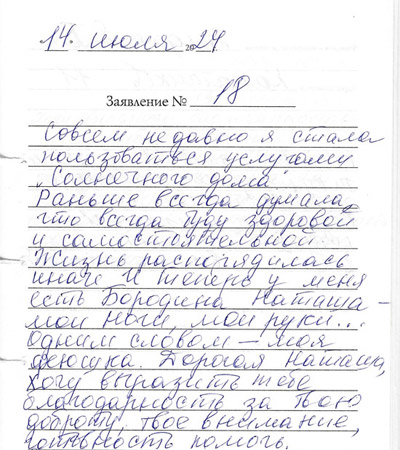 14. июля 2024
Заявление № 18
Совсем недавно я стала
пользоваться услугами
"Солнечного дома".
Раньше всегда думала,
что всегда буду здоровой
и самостоятельной.
Жизнь распорядилась
иначе. И теперь у меня
есть Бородина Наташа
мои ноги, мои руки...
Одним словом – моя
Дорогая Наташа,
хочу выразить тебе
благодарность за твою
доброту, твое внимание,
готовность помочь.